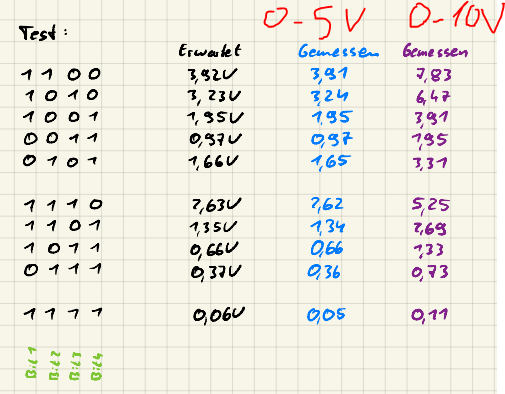 0-5V 0-10V
Test:
Erwartet Gemessen Gemessen
1 1 0 0 3,92V 3,91 7,83
1 0 1 0 3,23V 3,24 6,47
1 0 0 1 1,95V 1,95 3,91
0 0 1 1 0,97V 0,97 1,95
0 1 0 1 1,66V 1,65 3,31
1 1 1 0 2,63V 2,62 5,25
1 1 0 1 1,35V 1,34 2,69
1 0 1 1 0,66V 0,66 1,33
0 1 1 1 0,37V 0,36 0,73
1 1 1 1 0,06V 0,05 0,11
Bit1 Bit2 Bit3 Bit4